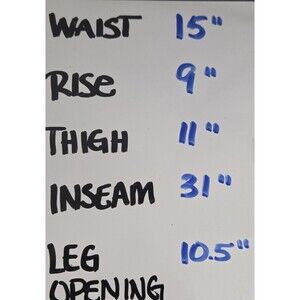 WAIST 15"
RISe 9"
THIGH 11"
INSEAM 31"
LEG 10.5"
OPENING